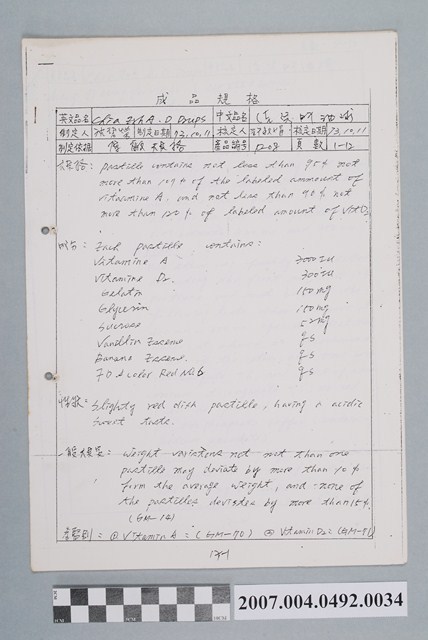 成品規格
英文品名 A.D. Drops 中文品名
制定人 制定日期 73.10.11 核定人 核定日期 73.10.11
制定依據 產品編號 頁數 1-12
particle contains not less than 95% not
more than 109% of the labeled ammount of
vitamine A. and not less than 90% not
more than 120% of labeled amount of Vit D2
Each particle contains:
Vitamine A 3000IU
Vitamine D2. 300IU
Gelatin 150mg
Glycerin 150mg
Sucrose 52mg
Vanillin Essence qs
Banana Essence. qs
FD & color Red No.6 qs
Slightly red dish particle, having a acidic
sweet taste.
weight variations not not than one
particle may deviate by more than 10%
form the average weight, and none of
the particles deviates by more than 15%.
(GM-14)
鑑別: ① Vitamin A: (GM-70) ② Vitamin D2:
12-1
2007.004.0492.0034